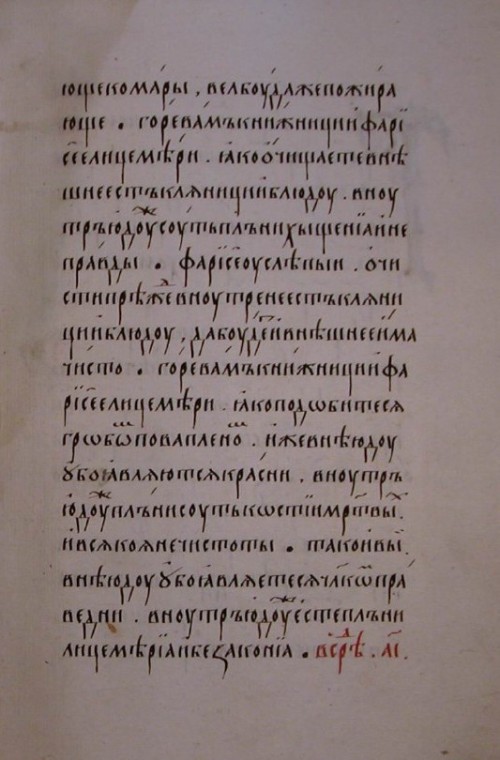 ющекомары , велбоудажепожира
юще . горевамъкнижницийфарі
сеелицемѣри . іакоочищаетевнѣ
шнеестъкляницийблюдоу . вноу
трьюдоужсоутьплънихыщеніаине
правды . фарісеоуслѣпыи . очи
стипрѣждевноутренеестъкляни
цийблюдоу , дабоудейвнѣшнееима
чисто . горевамъкнижницийфа
рісеелицемѣри . іакоподѡбитеся
грѡбѡⷨповаплено . ижевнѣюдоу
ꙋбоіавляютсякрасни . вноутръ
юдоуⷤплънисоутькѡстіимрт҃выⷯ .
ивсякоянечистоты . такоивы
внѣюдоуꙋбоіавляетесячл҃кѡⷨпра
ведни . вноутръюдоуⷤестеплъни
лицемѣріаибеꙁаконіа . всреⷣ . аі .